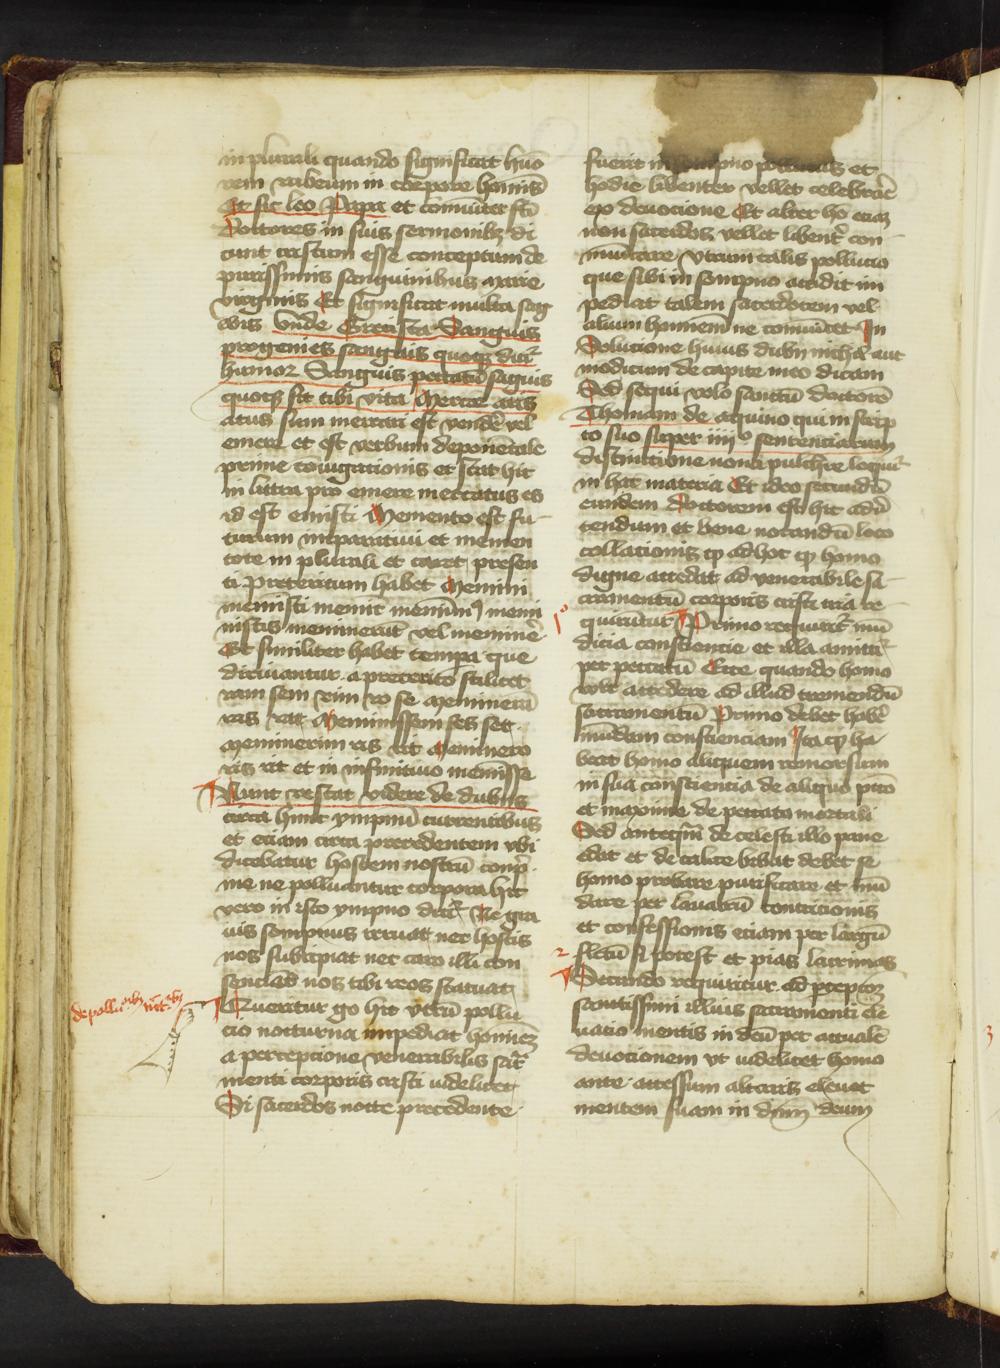 in plurali quando significat huō
rem rubeum in corpore hominis
Et sic leo Papa et cōmuniter scī
Doctores in suis sermonibꝫ di
cunt cristum esse conceptum de
purissimis sanguinibus marie
virginis Et significat multa san
Vnde Grecista Sanguis
progenies sanguis quoqꝫ dicit͛
humor Sanguis peccatū sāguis
quoqꝫ sit tibi vita Mercor aris
atus sum mercari est vendē vel
emere et est verbum deponentale
prime cōiugationis et stat hic
in littera pro emere mercatus es
id est emisti Memento est fu
turum imparativi et memen
tote in plurali et caret presen
ti Preteritum habet Memini
meministi meminit meminimꝰ memi
nistis meminerūt vel meminē
Et similiter habet tempa que
dirivantur a preterito scilicet
ram sem rim ro se Meminerā
ras rat Meminissem ses set
Meminerim ris rit Meminero
ris rit et in infinitivo meminisse
Nunc restat videre de dubiis
circa hunc ympnū currentibus
et etiam circa precedentem vbi
dicebatur hostem nostrū conp̄
me ne polluantur corpora hic
vero in isto ympno dicit͛ Ne gra
uis sompnus irruat nec hostis
nos subripiat nec caro illi con
senciad nos tibi reos statuat
de pollucōibꝫ noct̄ibꝫ
Queritur go hic vtrū pollu
cio nocturna impediat hominē
a perceptione venerabilis sacͬ
menti corporis cristi videlicet
Si sacerdos nocte precedente
fuerit in sompno pollutus et
hodie libenter vellet celebrare
ex devocione Et alter hō eciam
non sacerdos vellet libenter con
municare Vtrum talis pollucio
que sibi in sompno accidit im
pediat talem sacerdotem vel
alium hominem ne cōmunicet In
Solucione huius dubii nichil aut
modicum de capite meo dicam
Sed sequi volo sanctū doctorē
Thomam de aquino qui in scrip
to suo super iiij° sentenciarum
distinctione nona pulchre loquit͛
in hac materia Et ideo secundū
eundem Doctorem est hic adv̄
tendum et bene notandū loco
collationis ꝙ ad hoc ꝙ homo
digne accedat ad venerabile sa
cramentū corporis cristi tria re
1°
quirūtur Primo requirit͛ mū
dicia consciencie et illa amittit͛
per peccatū Ecce quando homo
vult accedere ad illud tremendū
sacramentū Primo debet habē
mundam conscienciam Ita ꝙ ha
beat homo aliquem remorsum
in sua consciencia de aliquo pccō
et maxime de peccato mortali
Sed antequam de celesti illo pane
edat et de calice bibat debet se
homo probare purificare et mū
dare per lavacrū contricionis
et confessionis eciam per largū
2
fletū si potest et pias lacrimas
Secundo requiritur ad precepcōꝫ
sanctissimi illius sacramenti ele
uacio mentis in deū per actualē
devocionem vt videlicet homo
ante accessum altaris elevet
mentem suam in dn̄m deum
3